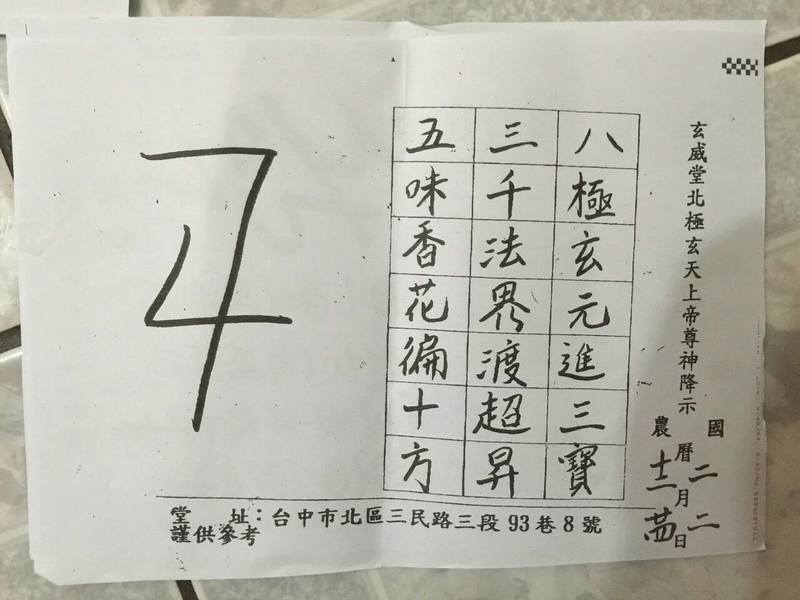 玄威堂北極玄天上帝尊神降示
國 二 二
曆 月 日
農 十二 廿四
八極玄元進三寶
三千法界渡超昇
五味香花徧十方
堂 址：台中市北區三民路三段93巷8號
謹供參考